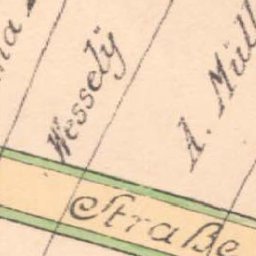 Wessely
A. Müll
Straße